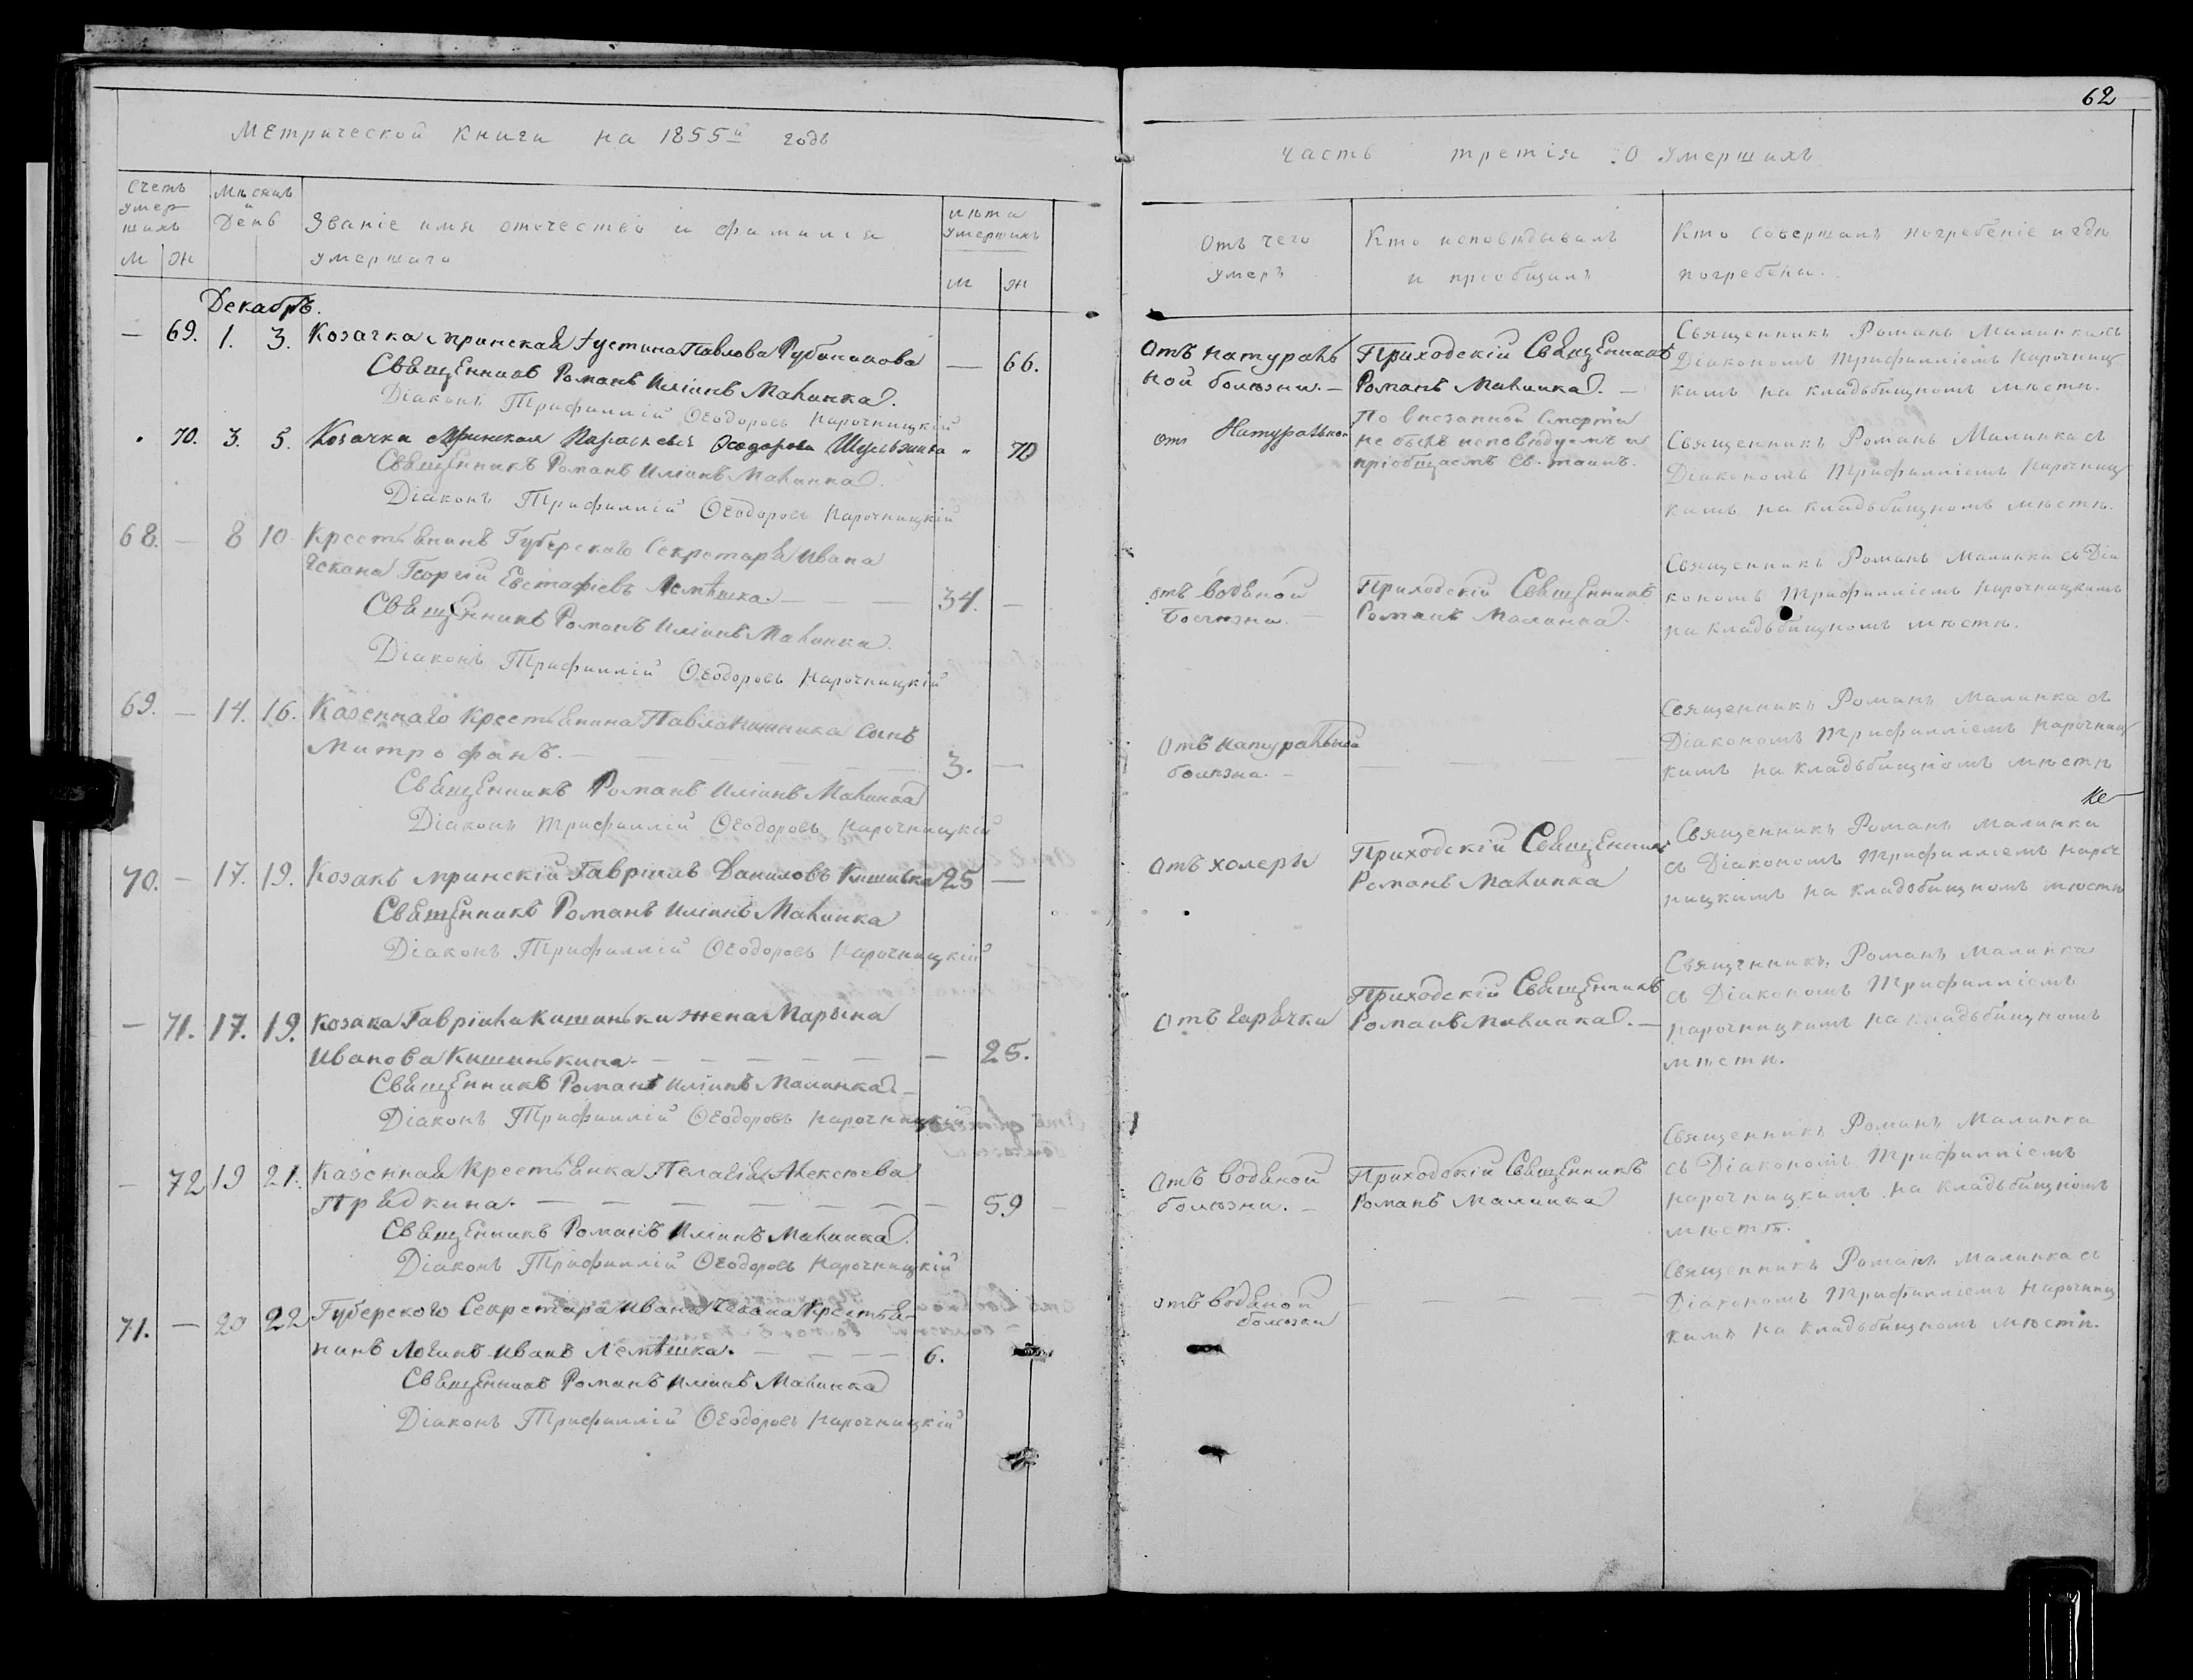 62
Метрической книги на 1855й годъ
часть третія: о умершихъ
Счетъ умер шихъ
Мѣсяцъ и День
Званіе имя отечество и фамилія умершаго
лѣта умершихъ
Отъ чего умеръ
Кто исповѣдывалъ и пріобщилъ
Кто совершалъ погребеніе и гдѣ погребены.
м ж
м ж
Декабрь.
— 69. 1. 3. Козачка мринская Іустина Павлова — 66.
Священникъ Романъ Иліинъ Малинка.
Діаконъ Трифиллій Ѳеодоровъ Нарочницкій
Отъ натураль
ной болюзни. —
Приходскій Священникъ
Романъ Малинка. —
Священникъ Романъ Малинка съ
Діакономъ Трифилліемъ Нарочниц
кимъ на кладьбищномъ мѣстѣ.
70. 3. 5. Козачка мринская Параскевія Ѳеодорова " 70
Священникъ Романъ Иліинъ Малинка.
Діаконъ Трифиллій Ѳеодоровъ Нарочницкій
отъ Натуральной
По внезапной смерти
не былъ исповюдуемъ и
пріобщаемъ Св. таинъ.
Священникъ Романъ Малинка съ
Діакономъ Трифилліемъ Нарочниц
кимъ на кладьбищномъ мѣстѣ.
68. — 8 10 Крестьянинъ Губерского Секретаря Ивана
Чекана Георгій Евстафіевъ Лемѣшка. — — — 34. —
Священникъ Романъ Иліинъ Малинка.
Діаконъ Трифиллій Ѳеодоровъ Нарочницкій
отъ водяной
болюзни. —
Приходскій Священникъ
Романъ Малинка.
Священникъ Романъ Малинка съ Діа
кономъ Трифилліемъ Нарочницкимъ
на кладьбищномъ мѣстѣ.
69. — 14. 16. Казеннаго Крестьянина Павла сынъ
Митрофанъ. — — — — — 3. —
Священникъ Романъ Иліинъ Малинка
Діаконъ Трифиллій Ѳеодоровъ Нарочницкій
Отъ натуральной
болюзни. —
— — — —
Священникъ Романъ Малинка съ
Діакономъ Трифилліемъ Нарочниц
кимъ на кладьбищномъ мѣстѣ
70. — 17. 19. Козакъ мринскій Гавріилъ Даниловъ Кишинька 25 —
Священникъ Романъ Иліинъ Малинка
Діаконъ Трифиллій Ѳеодоровъ Нарочницкій
Отъ холеры
Приходскій Священникъ
Романъ Малинка
Священникъ Романъ Малинка
съ Діакономъ Трифилліемъ Нароч
ницкимъ на кладьбищномъ мѣстѣ
— 71. 17. 19. Козака Гавріила Кишиньки жена Марѳина
Иванова Кишинькина. — — — — — 25.
Священникъ Романъ Иліинъ Малинка —
Діаконъ Трифиллій Ѳеодоровъ Нарочницкій
Отъ гарячки
Приходскій Священникъ
Романъ Малинка. —
Священникъ. Романъ Малинка
съ Діакономъ Трифилліемъ
Нарочницкимъ на кладьбищномъ
мѣстѣ.
— 72 19 21. Казенная Крестьянка Пелагія Алексюева
Прядкина. — — — — — — — 59 —
Священникъ Романъ Иліинъ Малинка.
Діаконъ Трифиллій Ѳеодоровъ Нарочницкій
Отъ водяной
болюзни. —
Приходскій Священникъ
Романъ Малинка
Священникъ Романъ Малинка
съ Діакономъ Трифилліемъ
Нарочницкимъ на кладьбищномъ
мѣстѣ.
71. — 20 22 Губерского Секретара Ивана Чекана Крестья-
нинъ Логинъ Иванъ Лемѣшка. — — — — 6.
Священникъ Романъ Иліинъ Малинка
Діаконъ Трифиллій Ѳеодоровъ Нарочницкій
отъ водяной
болюзни
— — — — —
Священникъ Романъ Малинка съ
Діакономъ Трифилліемъ Нарочниц
кимъ на кладьбищномъ мѣстѣ.